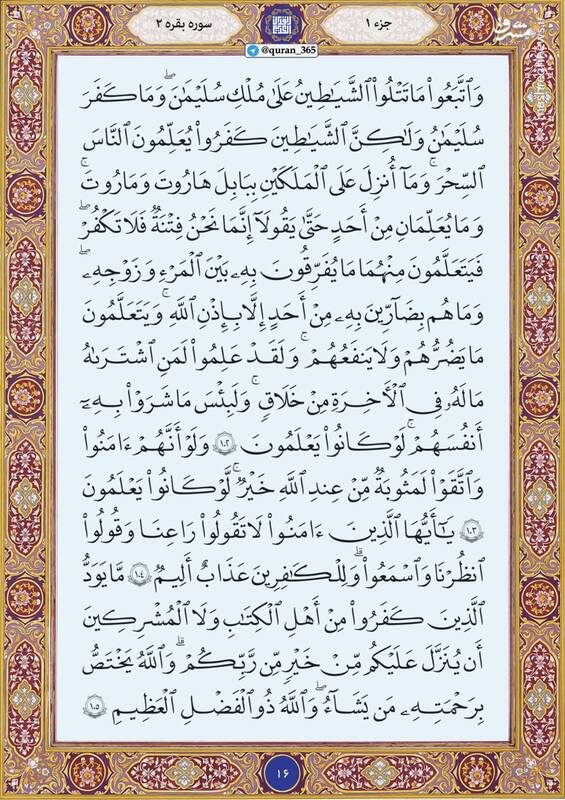 جزء ۱
سوره بقره ۲
@quran_365
مشرق
وَٱتَّبَعُوا۟ مَا تَتْلُوا۟ ٱلشَّيَـٰطِينُ عَلَىٰ مُلْكِ سُلَيْمَـٰنَ ۖ وَمَا كَفَرَ
سُلَيْمَـٰنُ وَلَـٰكِنَّ ٱلشَّيَـٰطِينَ كَفَرُوا۟ يُعَلِّمُونَ ٱلنَّاسَ
ٱلسِّحْرَ وَمَآ أُنزِلَ عَلَى ٱلْمَلَكَيْنِ بِبَابِلَ هَـٰرُوتَ وَمَـٰرُوتَ ۚ
وَمَا يُعَلِّمَانِ مِنْ أَحَدٍ حَتَّىٰ يَقُولَآ إِنَّمَا نَحْنُ فِتْنَةٌ فَلَا تَكْفُرْ ۖ
فَيَتَعَلَّمُونَ مِنْهُمَا مَا يُفَرِّقُونَ بِهِۦ بَيْنَ ٱلْمَرْءِ وَزَوْجِهِۦ ۚ
وَمَا هُم بِضَآرِّينَ بِهِۦ مِنْ أَحَدٍ إِلَّا بِإِذْنِ ٱللَّهِ ۚ وَيَتَعَلَّمُونَ
مَا يَضُرُّهُمْ وَلَا يَنفَعُهُمْ ۚ وَلَقَدْ عَلِمُوا۟ لَمَنِ ٱشْتَرَىٰهُ
مَا لَهُۥ فِى ٱلْـَٔاخِرَةِ مِنْ خَلَـٰقٍ ۚ وَلَبِئْسَ مَا شَرَوْا۟ بِهِۦٓ
أَنفُسَهُمْ ۚ لَوْ كَانُوا۟ يَعْلَمُونَ ۝١٠٢ وَلَوْ أَنَّهُمْ ءَامَنُوا۟
وَٱتَّقَوْا۟ لَمَثُوبَةٌ مِّنْ عِندِ ٱللَّهِ خَيْرٌ ۖ لَّوْ كَانُوا۟ يَعْلَمُونَ
۝١٠٣ يَـٰٓأَيُّهَا ٱلَّذِينَ ءَامَنُوا۟ لَا تَقُولُوا۟ رَٰعِنَا وَقُولُوا۟
ٱنظُرْنَا وَٱسْمَعُوا۟ ۗ وَلِلْكَـٰفِرِينَ عَذَابٌ أَلِيمٌ ۝١٠٤ مَّا يَوَدُّ
ٱلَّذِينَ كَفَرُوا۟ مِنْ أَهْلِ ٱلْكِتَـٰبِ وَلَا ٱلْمُشْرِكِينَ
أَن يُنَزَّلَ عَلَيْكُم مِّنْ خَيْرٍ مِّن رَّبِّكُمْ ۗ وَٱللَّهُ يَخْتَصُّ
بِرَحْمَتِهِۦ مَن يَشَآءُ ۚ وَٱللَّهُ ذُو ٱلْفَضْلِ ٱلْعَظِيمِ ۝١٠٥
۱۶